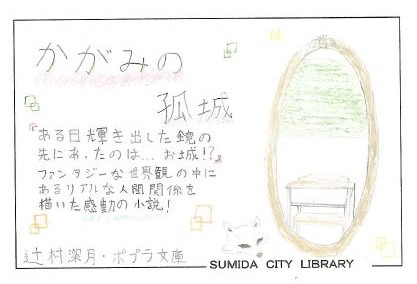 かがみの
孤城
『ある日輝き出した鏡の
先にあったのは…お城!?』
ファンタジーな世界観の中に
あるリアルな人間関係を
描いた感動の小説!
辻村深月・ポプラ文庫
SUMIDA CITY LIBRARY